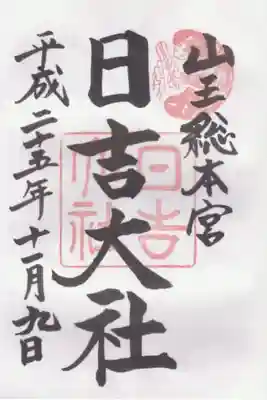 山王総本宮
日吉大社
平成二十五年十一月九日
日吉大社